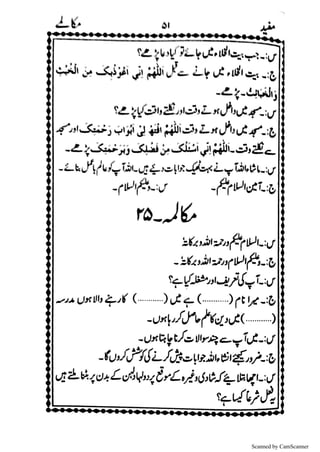 مفید ۵۱ مکالمے
س:۔ جب بیت الخلاء میں جائے تو کیا دعا پڑھے؟
ج:۔ بیت الخلاء میں جانے سے قبل اَللّٰهُمَّ اِنِّی اَعُوْذُبِکَ مِنَ الْخُبُثِ
وَالْخَبَائِثِ۔ پڑھے۔
س:۔ مسجد میں داخل ہوتے وقت اور نکلتے وقت کیا پڑھے؟
ج:۔ مسجد میں داخل ہوتے وقت اَللّٰهُمَّ افْتَحْ لِیْ اَبْوَابَ رَحْمَتِکَ اور مسجد
سے نکلتے وقت۔ اَللّٰهُمَّ اِنِّی اَسْئَلُکَ مِنْ فَضْلِکَ وَبِرَحْمَتِکَ پڑھے۔
س:۔ ماشاء اللہ آپ نے بہت ٹھیک جوابات دیئے ہیں۔ اللہ آپ کو عالم باعمل بنائے۔
ج:۔ آمین السلام علیکم۔ س:۔ وعلیکم السلام۔
مکالمہ۔۲۵
س:۔ السلام علیکم ورحمۃ اللہ وبرکاتہ
ج:۔ وعلیکم السلام ورحمۃ اللہ وبرکاتہ۔
س:۔ آپ کی تعریف اور مشغلہ کیا ہے؟
ج:۔ میرا نام (............) ہے میں (............) کا رہنے والا ہوں مدرسہ
(............) میں دین کا علم حاصل کر رہا ہوں۔
س:۔ میں آپ سے چند سوالات کرنا چاہتا ہوں۔
ج:۔ ضرور کیجئے انشاء اللہ جوابات پیش کرنے کی کوشش کروں گا۔
س:۔ اچھا بتلائیے کہ شادی وغیرہ کے موقع پر دولہا دلہن کے بدن پر بٹنا ملتے ہیں
یہ فعل شرعاً کیسا ہے؟
Scanned by CamScanner